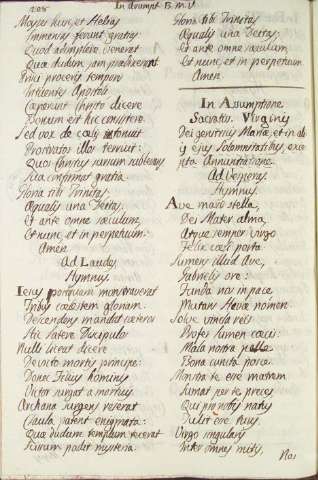 208
In Assumpt B. M. V
Moyses huic, et Helias
Immensas ferunt gratias
Quod adimplens venerat
Quæ dudum jam prædixerat
Petrus
Incipiente Apostoli
Cæperunt Christo dicere
Bonum est hic consistere
Sed vox de cælis intonuit
Gloria tibi Trinitas
Æqualis una Deitas
Et ante omne sæculum,
Et nunc, et in perpetuum.
Amen
Ad Laudes
Hymnus.
Iesus postquam monstraverat
Tribus cælestem gloriam
Descendens mandat cæteris
Nulli licere dicere
Devicto mortis principe
Donec Filius hominis
Victor surgat a mortuis
Archana surgens reserat
Clausa patent enigmata
Quæ dudum templum texerat
Scissum pandit mysteria.
Gloria tibi Trinitas
Æqualis una Deitas
Et ante omne sæculum
Et nunc, et in perpetuum
Amen
In Assumptione
Sacratiss. Virginis
Dei genitricis Mariæ, et in ali
is ejus Solemnitatibus, exce
pta Annuntiatione.
Ad Vesperas
Hymnus.
Ave maris stella,
Dei Mater alma,
Atque semper virgo
Felix cœli porta.
Sumens illud Ave,
Gabrielis ore:
Funda nos in pace
Mutans Hevæ nomen.
Solve vincla reis
Profer lumen cæcis:
Mala nostra pelle
Bona cuncta posce.
Monstra te esse matrem
Sumat per te preces,
Qui pro nobis natus
Tulit esse tuus.
Virgo singularis
Inter omnes mitis,
Nos